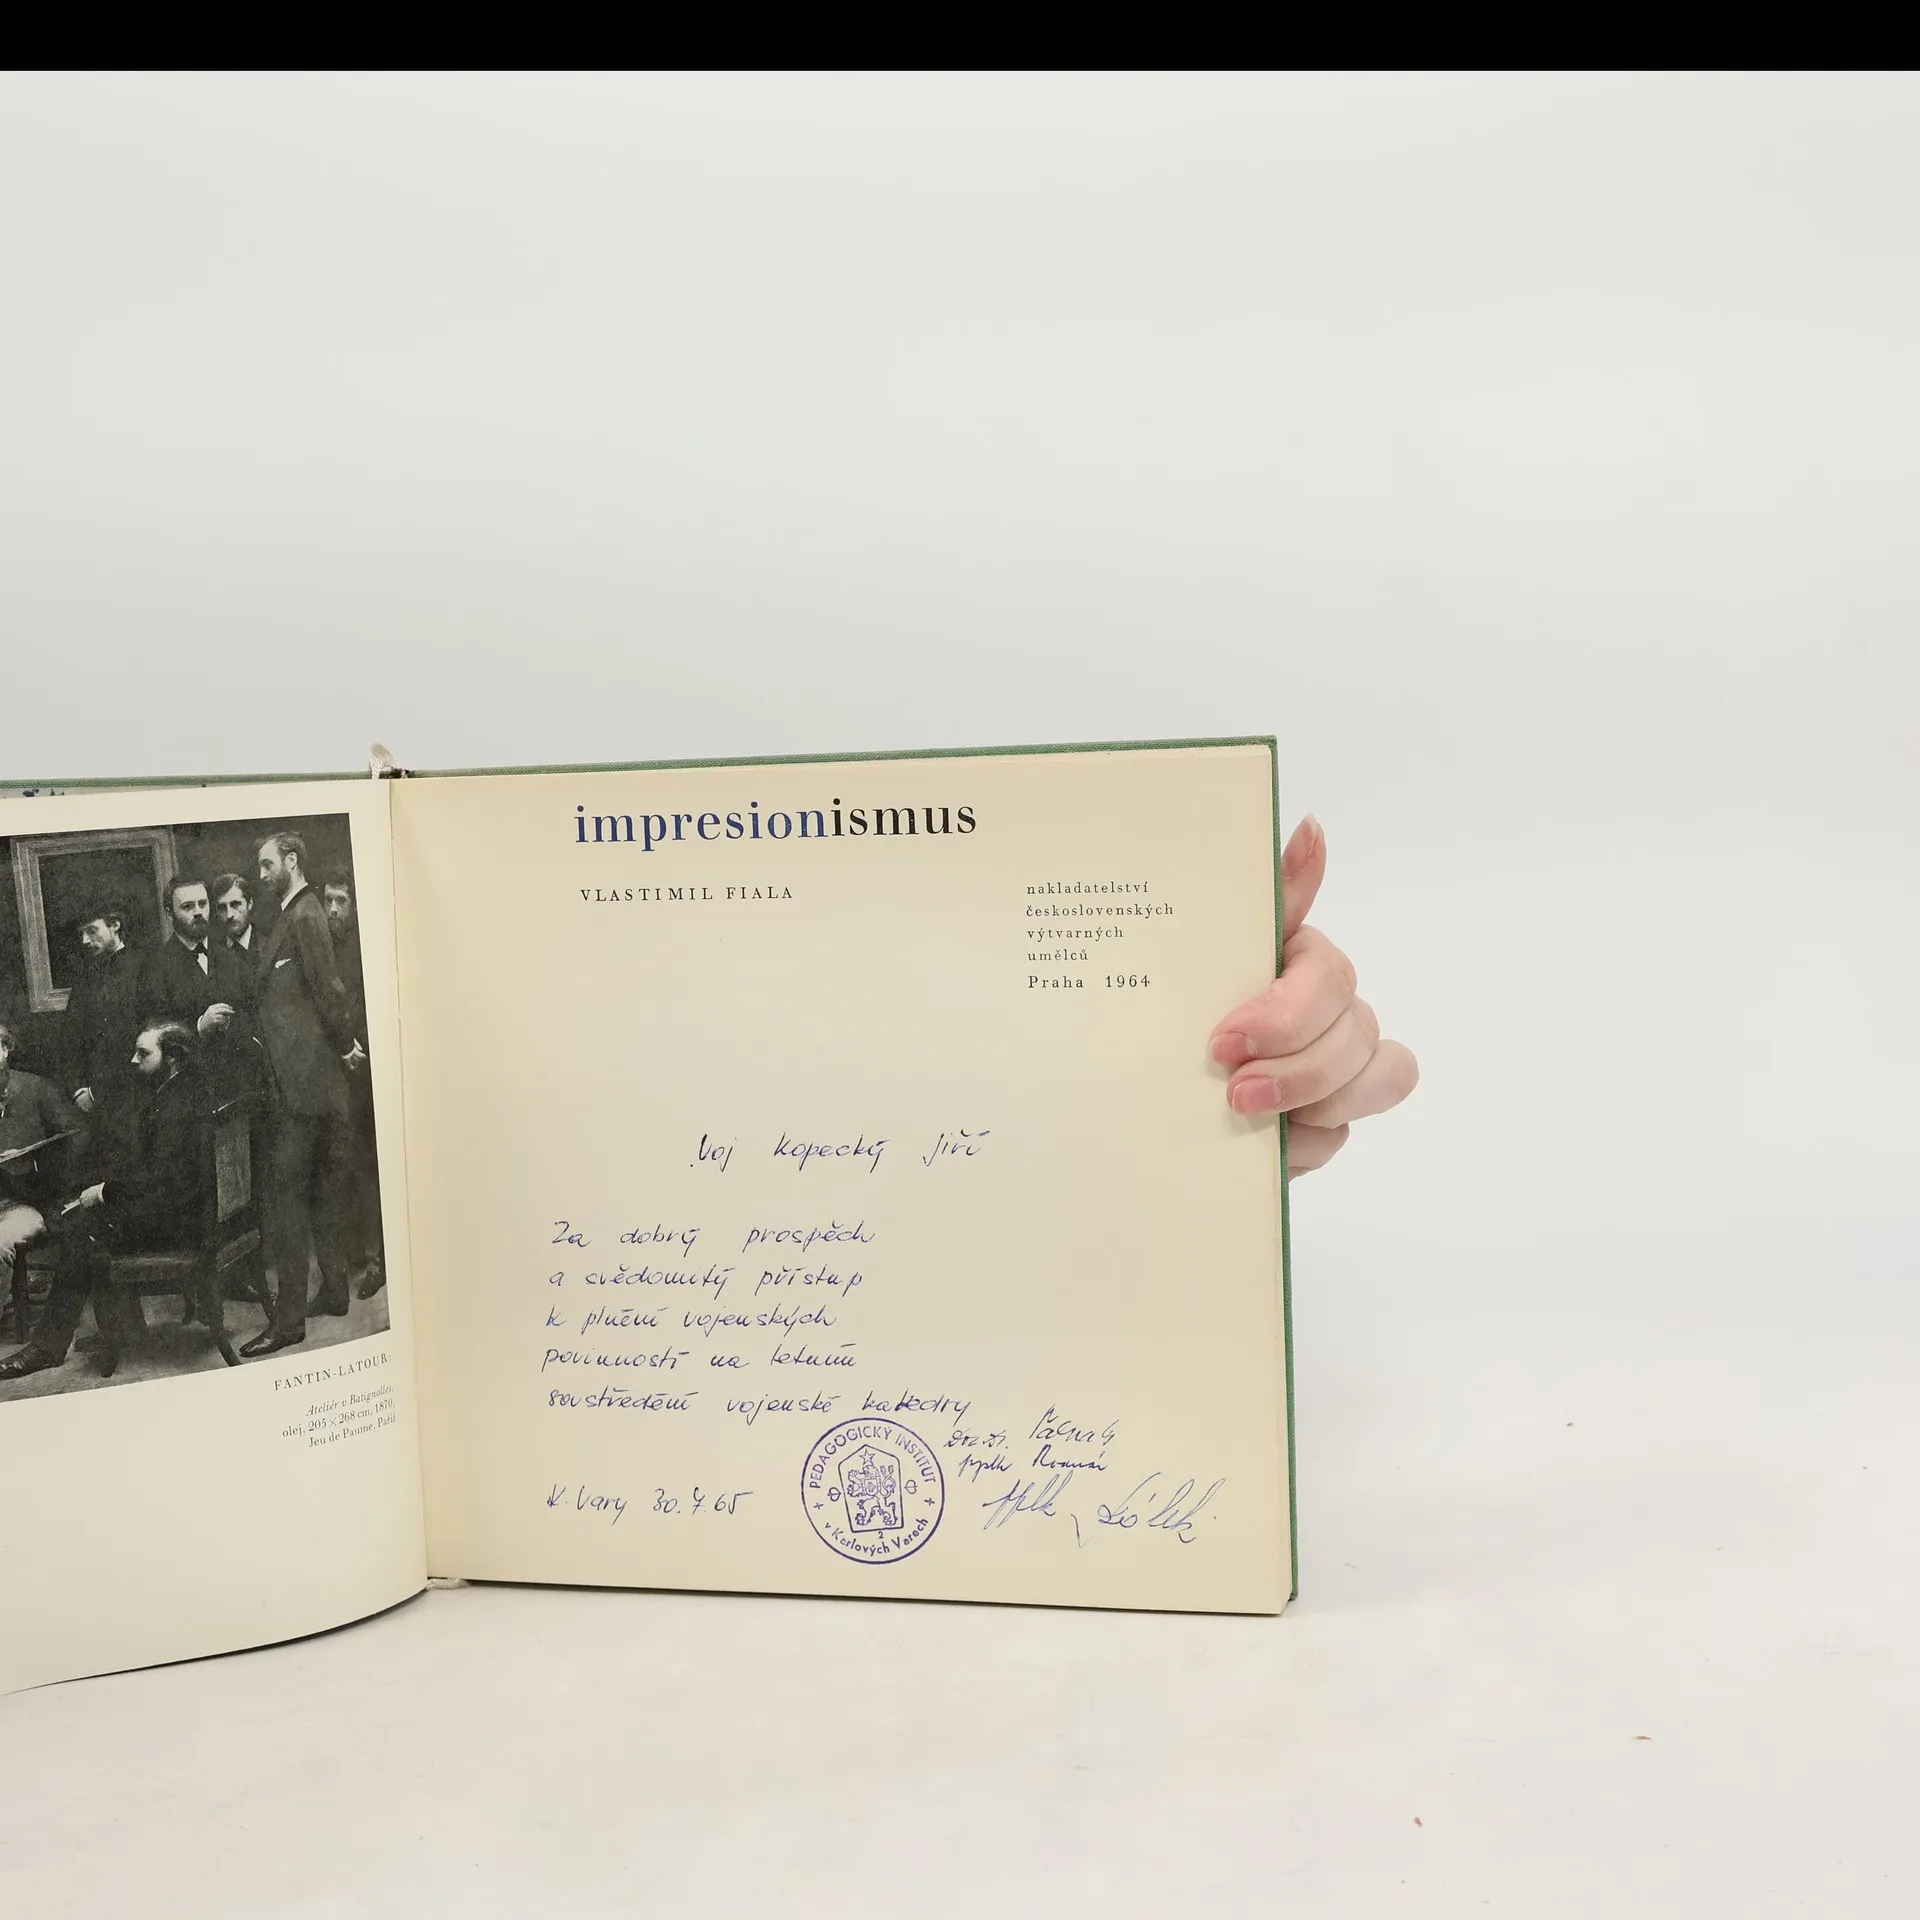 FANTIN-LATOUR:
Ateliér v Batignolles,
olej, 205 × 268 cm, 1870,
Jeu de Paume, Paříž
impresionismus
VLASTIMIL FIALA
nakladatelství
československých
výtvarných
umělců
Praha 1964
Voj Kopecký Jiří
Za dobrý prospěch
a svědomitý přístup
k plnění vojenských
povinností na letním
soustředění vojenské katedry
K. Vary 30.7.65
PEDAGOGICKÝ INSTITUT
v Karlových Varech
2
pplk